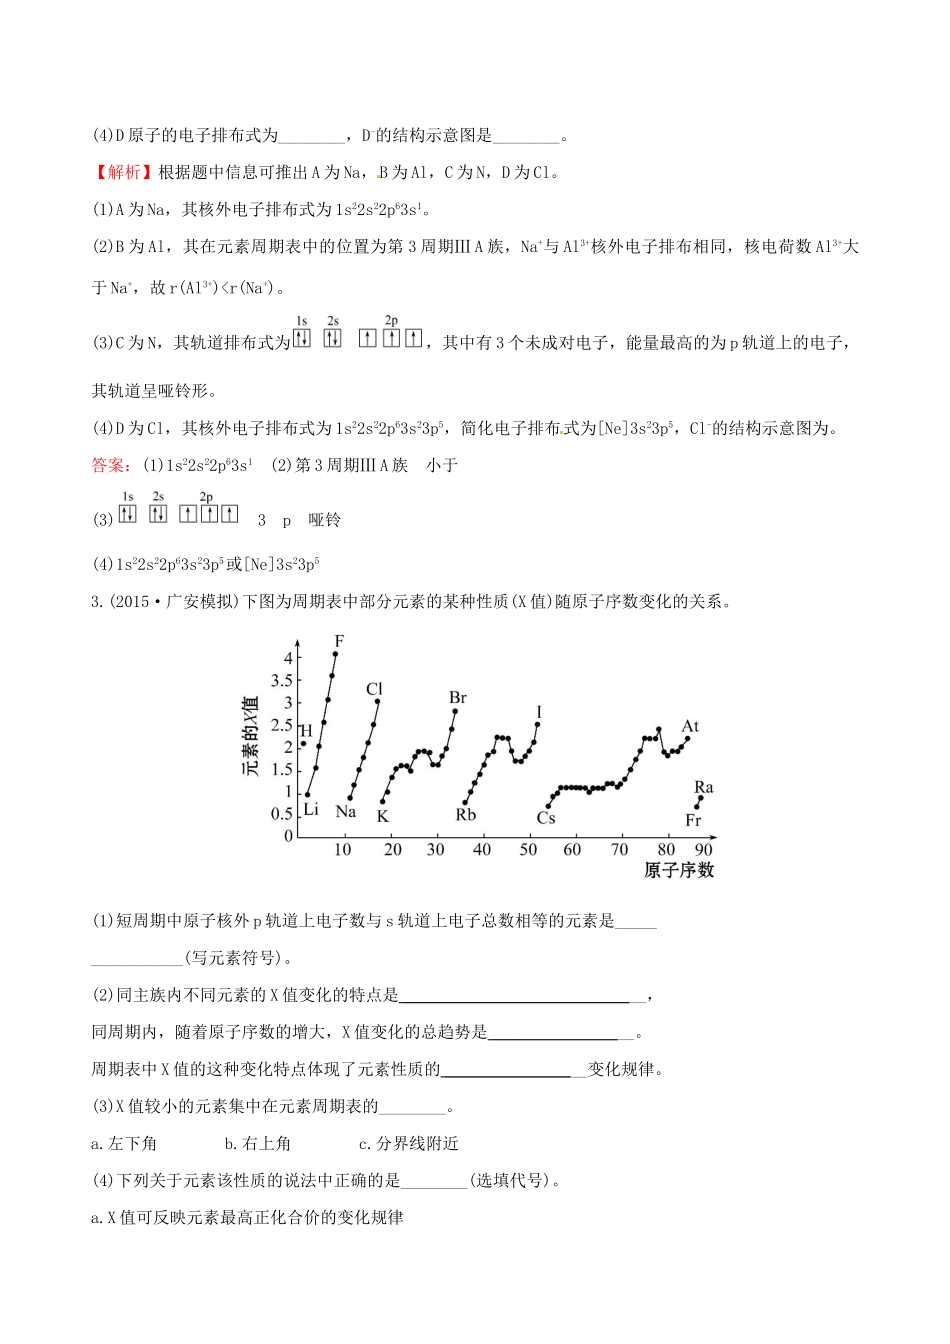 (4)D原子的电子排布式为________,D⁻的结构示意图是________。
【解析】根据题中信息可推出A为Na,B为Al,C为N,D为Cl。
(1)A为Na,其核外电子排布式为1s²2s²2p⁶3s¹。
(2)B为Al,其在元素周期表中的位置为第3周期ⅢA族,Na⁺与Al³⁺核外电子排布相同,核电荷数Al³⁺大
于Na⁺,故r(Al³⁺)<r(Na⁺)。
1s 2s 2p
(3)C为N,其轨道排布式为 ↑↓ ↑↓ ↑ ↑ ↑ ,其中有3个未成对电子,能量最高的为p轨道上的电子,
其轨道呈哑铃形。
(4)D为Cl,其核外电子排布式为1s²2s²2p⁶3s²3p⁵,简化电子排布式为[Ne]3s²3p⁵,Cl⁻的结构示意图为。
答案:(1)1s²2s²2p⁶3s¹ (2)第3周期ⅢA族 小于
1s 2s 2p
(3) ↑↓ ↑↓ ↑ ↑ ↑ 3 p 哑铃
(4)1s²2s²2p⁶3s²3p⁵或[Ne]3s²3p⁵
3.(2015·广安模拟)下图为周期表中部分元素的某种性质(X值)随原子序数变化的关系。
元素的X值
4
3.5
3
2.5
2
1.5
1
0.5
0
F
Cl
Br
I
At
H
Ra
Li
Na
K
Rb
Cs
Fr
10 20 30 40 50 60 70 80 90
原子序数
(1)短周期中原子核外p轨道上电子数与s轨道上电子总数相等的元素是_____
___________(写元素符号)。
(2)同主族内不同元素的X值变化的特点是____________________________,
同周期内,随着原子序数的增大,X值变化的总趋势是_________________。
周期表中X值的这种变化特点体现了元素性质的_________________变化规律。
(3)X值较小的元素集中在元素周期表的________。
a.左下角 b.右上角 c.分界线附近
(4)下列关于元素该性质的说法中正确的是________(选填代号)。
a.X值可反映元素最高正化合价的变化规律